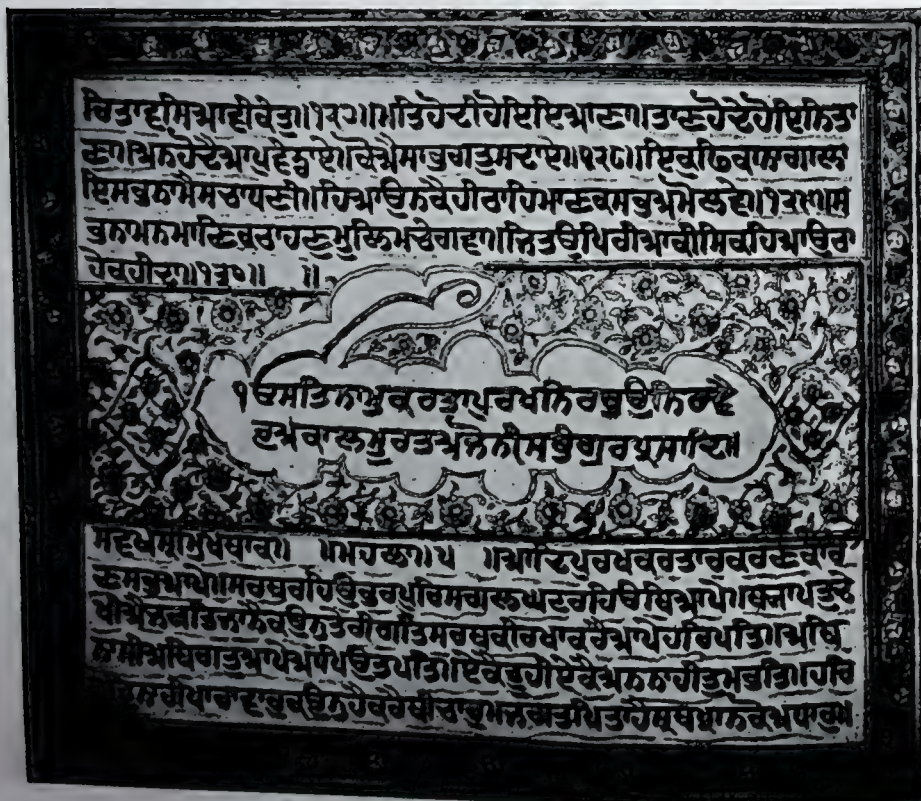 ਚਿਤਾਵਸਿਆਵੀਕੰਤੁ॥੧੨੭॥ਮਤਿਹੋਦੀਹੋਇਇਆਣਾ॥ਤਾਣਹੋਦੇਹੋਇਨਿਤਾ
ਣਾ॥ਅਨਹੋਦੈਆਪੁਵੰਡਾਏ॥ਕੋਐਸਾਭਗਤੁਸਦਾਏ॥੧੨੮॥ਇਕੁਫਿਕਾਨਗਾਲਾ
ਇਸਭਨਾਮੈਸਚਾਧਣੀ॥ਹਿਆਉਨਕੈਹੀਠਾਹਿਮਾਣਕਸਭਅਮੋਲਵੇ॥੧੨੯॥ਸ
ਭਨਾਮਨਮਾਣਿਕਠਾਹਣੁਮੂਲਿਮਚਾਂਗਵਾ॥ਜੇਤਉਪਿਰੀਆਦੀਸਿਕਹਿਆਉਠਾ
ਹੇਕਹੀਦਾ॥੧੩੦॥ ॥
ੴਸਤਿਨਾਮੁਕਰਤਾਪੁਰਖੁਨਿਰਭਉਨਿਰਵੈ
ਰੁਅਕਾਲਮੂਰਤਿਅਜੋਨੀਸੈਭੰਗੁਰਪ੍ਰਸਾਦਿ॥
ਸਵਯੇਸ੍ਰੀਮੁਖਬਾਕ॥ ॥ਮਹਲਾ॥੫ ॥ਆਦਿਪੁਰਖਕਰਤਾਰਕਰਣਕਾਰ
ਣਸਭਆਪੇ॥ਸਰਬਰਹਿਉਭਰਪੂਰਿਸਗਲਘਟਰਹਿਓਬਿਆਪੇ॥ਬ੍ਯਾਪਤੁਦੇ
ਖੀਐਜਗਤਿਜਾਨੈਕਉਨੁਤੇਰੀਗਤਿਸਰਬਕੀਰਖਾਕਰੈਆਪੇਹਰਿਪਤਿ॥ਅਬਿ
ਨਾਸੀਅਬਿਗਤੁਆਪੇਆਪਿਉਤਪਤਿ॥ਏਕੈਤੂਹੀਏਕੈਅਨਨਾਹੀਤੁਮਭਤਿ॥ਹਰਿ
ਨਾਹੀਪਾਰਾਵਾਰੁਕਉਨੁਹੈਕਰੈਬੀਚਾਰੁਜਗਤਪਿਤਾਹੈਸ੍ਰਬਪ੍ਰਾਨਕੋਅਧਾਰੁ॥